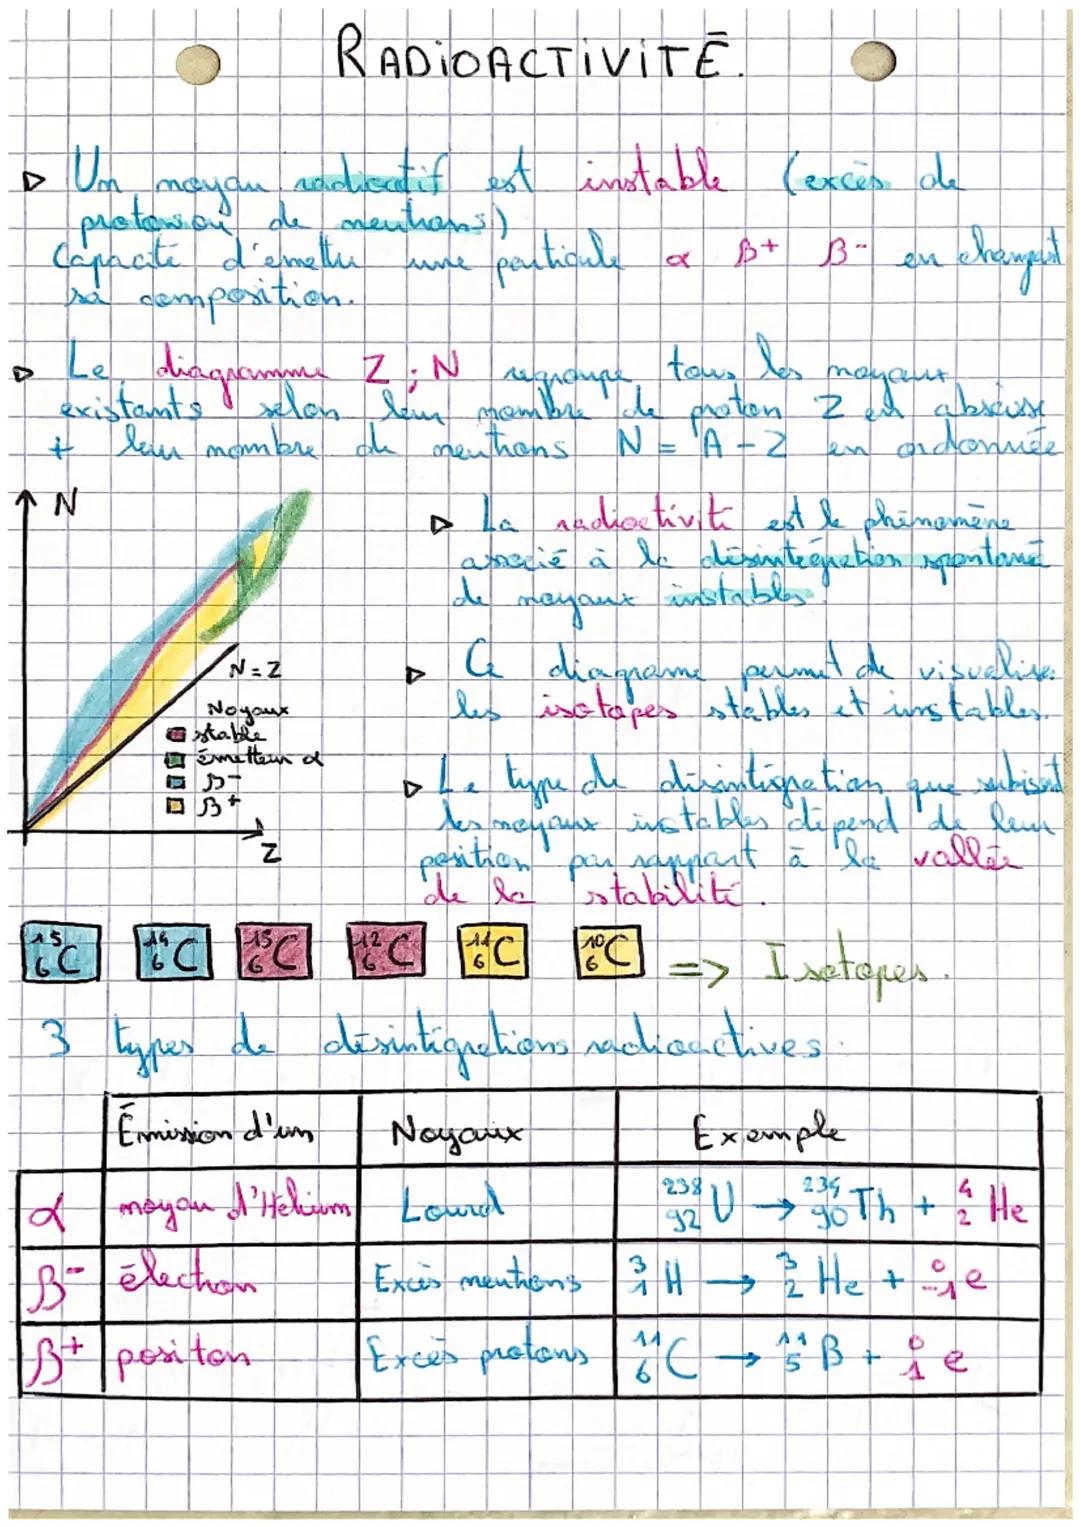 RADIOACTIVITÉ.
▷ Un noyau radioactif est instable (excès de
protons ou de neutrons)
Capacité d'émettre une particule α β+ β- en changeant
sa composition.
▷ Le diagramme Z ; N regroupe tous les noyaux
existants selon leur nombre de proton Z en abscisse
+ leur nombre de neutrons N = A - Z en ordonnée
N
N = Z
Noyaux
stable
émetteur α
β-
β+
Z
▷ La radioctivité est le phénomène
associé à la désintégration spontané
de noyaux instables.
▷ Ce diagrame permet de visualiser
les isotopes stables et instables.
▷ Le type de désintégration que subisent
les noyaux instables dépend de leur
position par rapport à la vallée
de la stabilité.
¹⁵₆C ¹⁴₆C ¹³₆C ¹²₆C ¹¹₆C ¹⁰₆C => Isotopes.
3 types de désintégrations radioactives.
Émission d'un Noyaux Exemple
α noyau d'Hélium Lourd ²³⁸₉₂U → ²³⁴₉₀Th + ⁴₂He
β- électron Excès neutrons ³₁H → ³₂He + ⁰₋₁e
β+ positon Excès protons ¹¹₆C → ¹¹₅B + ⁰₁e